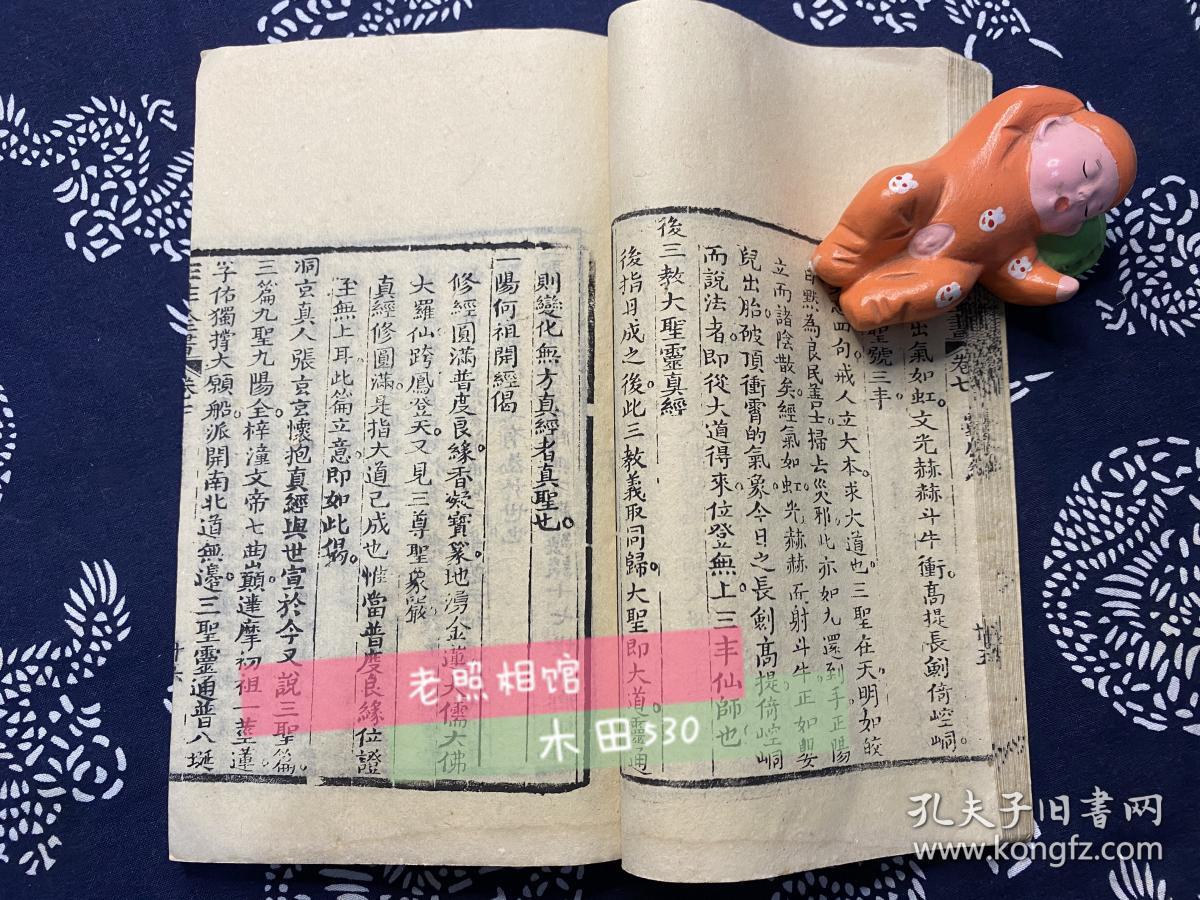 卷七
出氣如虹。文光赫赫斗牛衝。高提長劍倚崆峒。
聖號三丰
四句。戒人立大本。求大道也。三聖在天。明如皎
即默為良民善士掃去災邪。此亦如九還到手。正陽
立而諸陰散矣。經氣如虹。光赫赫而射斗牛。正如嬰
兒出胎。破頂衝霄的氣象。今日之長劍高提倚崆峒
而說法者。即從大道得來。位登無上。三丰仙師也
後三教大聖靈真經
後指丹成之後。此三教義取同歸。大聖即大道靈通
則變化無方。真經者真聖也。
一陽何祖開經偈
修經圓滿普度良緣。香凝寶篆。地湧金蓮。大儒大佛
大羅仙。跨鳳登天。又見三尊聖象嚴
真經修圓滿。是指大道已成也。惟當普度良緣。位證
至無上耳。此篇立意。即如此偈。
洞玄真人張玄玄。懷抱真經與世宣。於今又說三聖篇。
三篇九聖九陽全。梓潼文帝七曲巔。達摩初祖一莖蓮。
孚佑獨撐大願船。派開南北道無邊。三聖靈通普八埏
老照相馆
木田530
孔夫子旧书网
www.kongfz.com